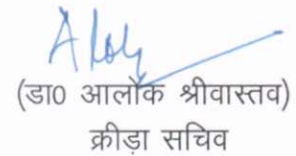 (डा0 आलोक श्रीवास्तव)
क्रीड़ा सचिव